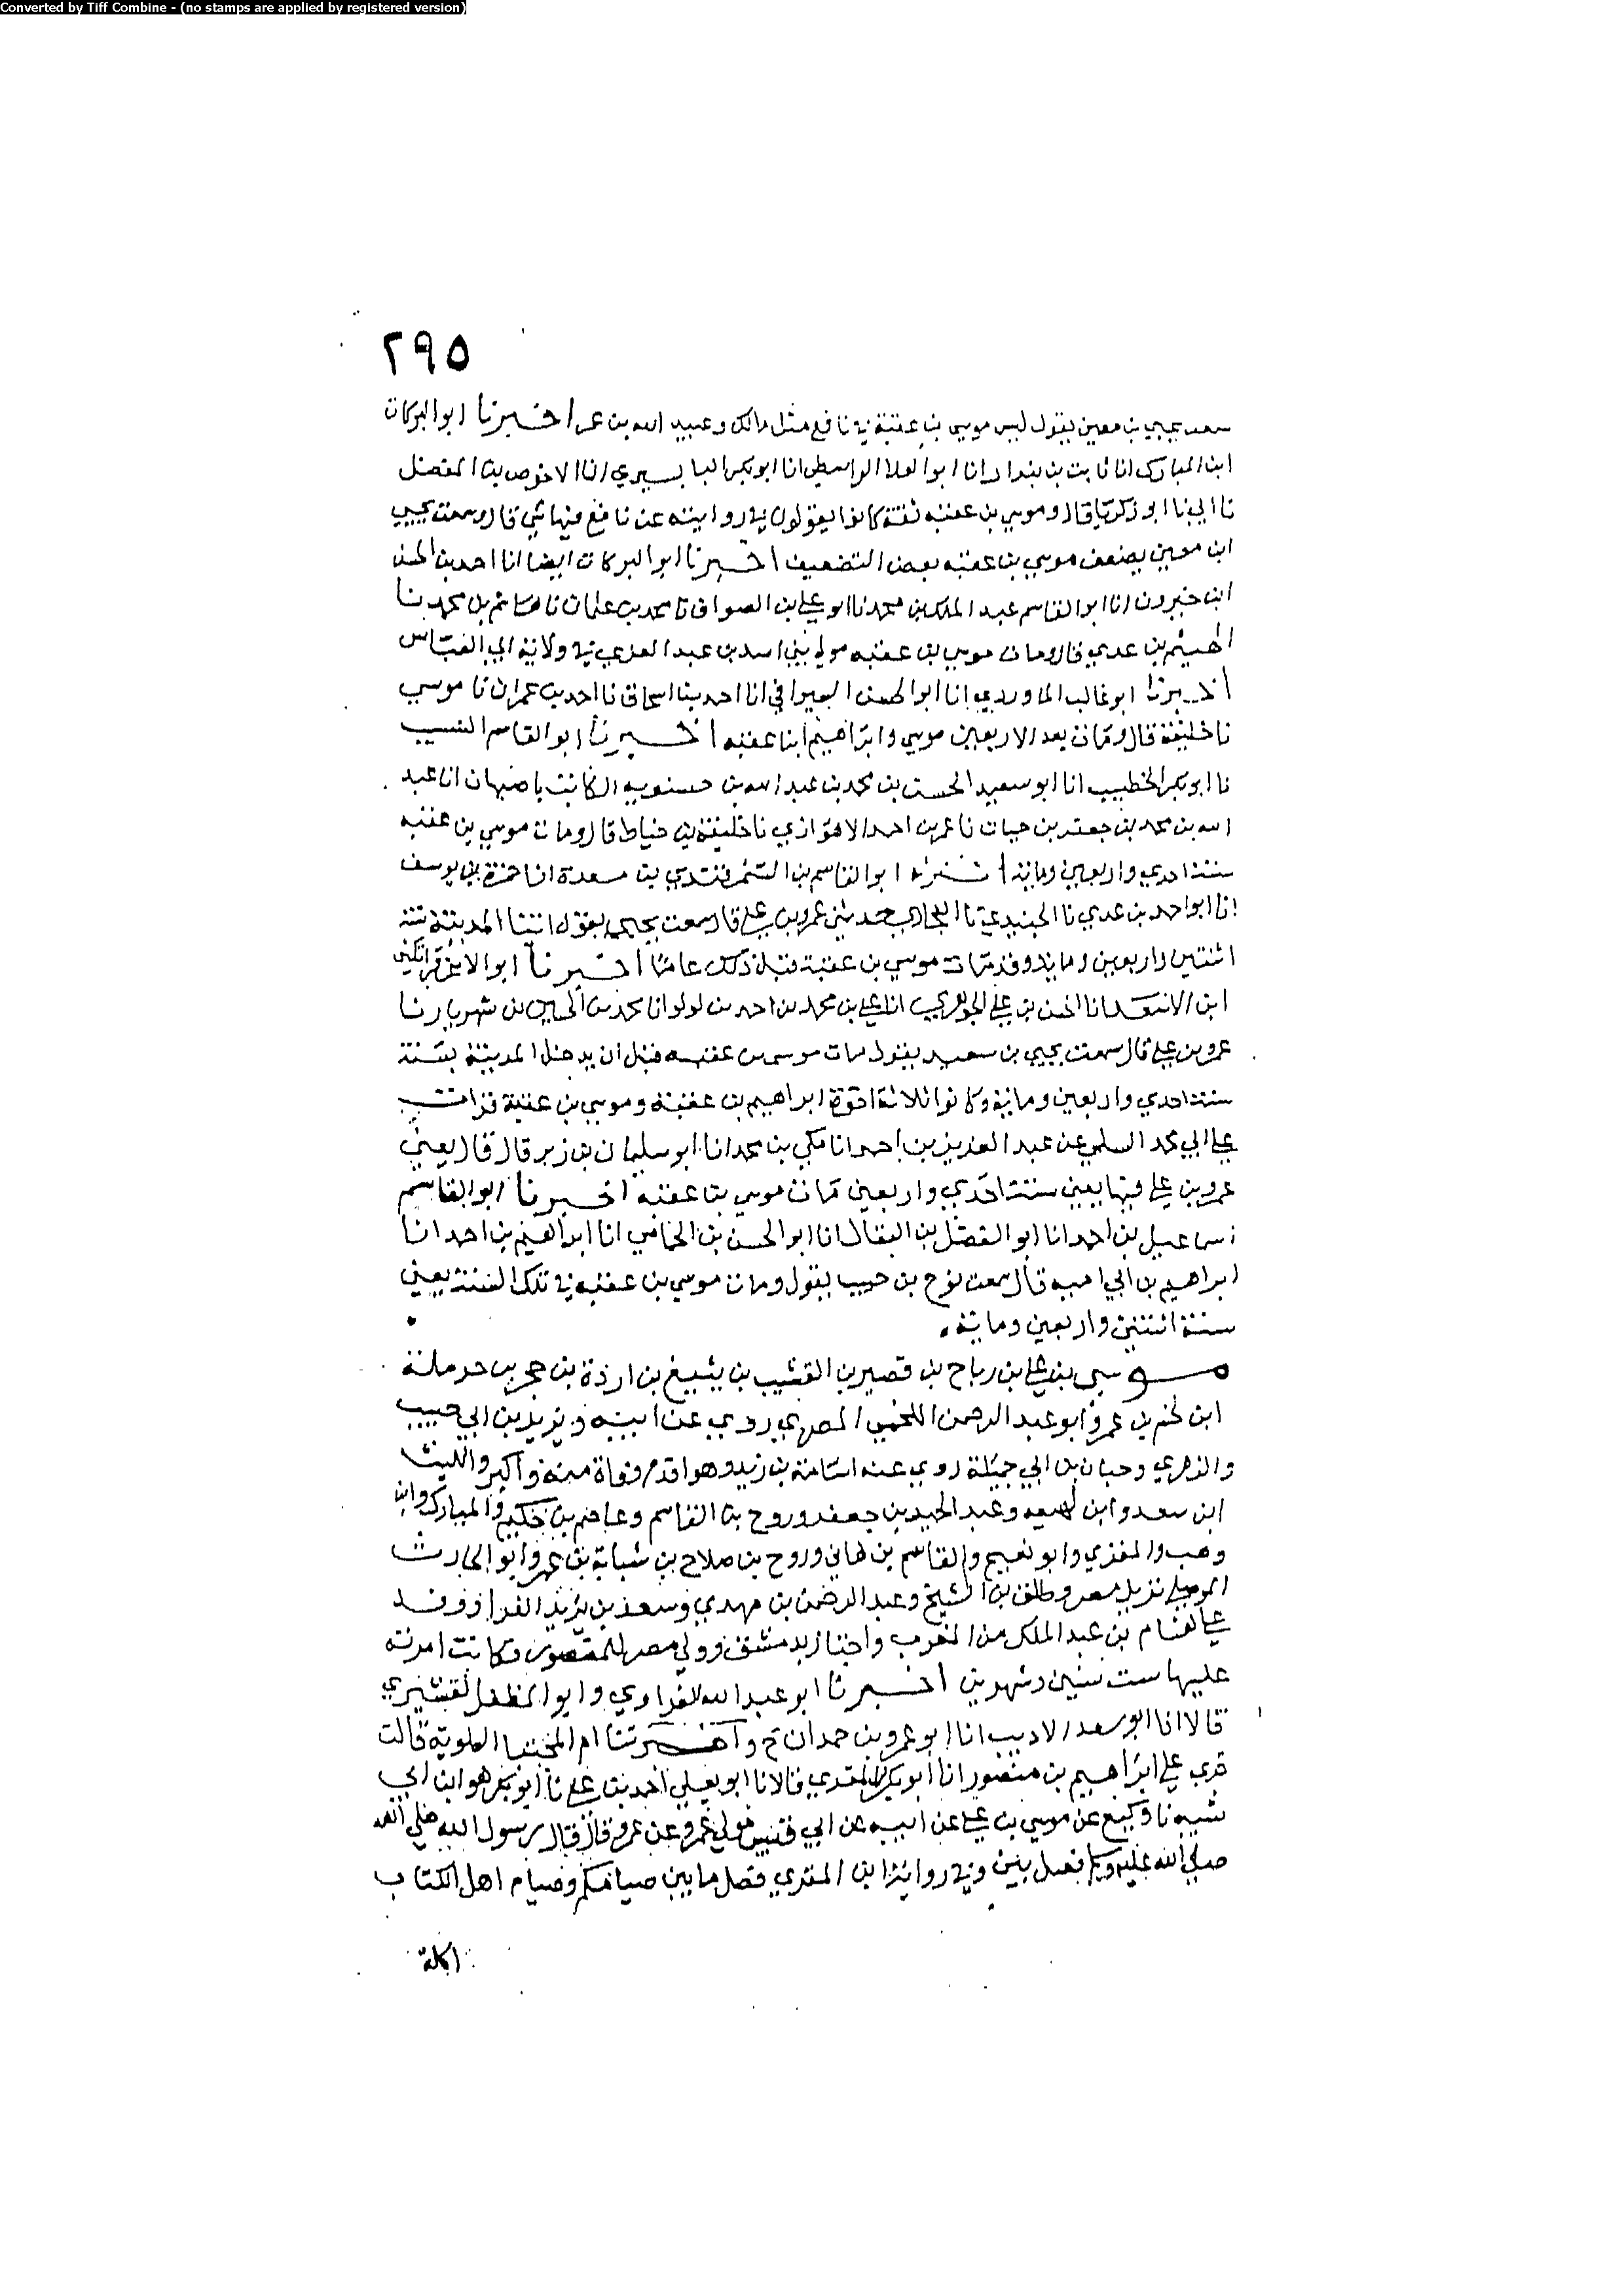 Converted by Tiff Combine - (no stamps are applied by registered version)
٢٩٥
سمعت يحيى بن معين يقول ليس موسى بن عقبة في نافع مثل مالك وعبيد الله بن عمر اخبرنا ابو البركات
ابن المبارك انا ثابت بن بندار انا ابو العلا الواسطي انا ابو بكر البابسيري انا الاحوص بن المفضل
نا ابي نا ابو زكريا قال وموسي بن عقبه ثقة كانوا يقولون في روايته عن نافع فيها شي قال وسمعت يحيي
ابن معين يضعف موسي بن عقبه بعض التضعيف اخبرنا ابو البركات ايضا انا احمد بن الحسن
ابن خيرون انا ابو القاسم عبد الملك بن محمد نا ابو علي بن الصواف نا محمد بن عثمان نا هاشم بن محمد نا
الهيثم بن عدي قال ومات موسي بن عقبه مولي بني اسد بن عبد العزي في ولاية ابي العباس
اخبرنا ابو غالب الماوردي انا ابو الحسن السيرافي انا احمد بن اسحاق نا احمد بن عمران نا موسي
نا خليفة قال ومات بعد الاربعين موسي وابراهيم ابنا عقبه اخبرنا ابو القاسم النسيب
نا ابو بكر الخطيب انا ابو سعيد الحسن بن محمد بن عبد الله بن حسنويه الكاتب باصبهان انا عبد
الله بن محمد بن جعفر بن حيات نا عمر بن احمد الاهوازي نا خليفة بن خياط قال ومات موسي بن عقبه
سنة احدي واربعين وماية اخبرنا ابو القاسم بن السمرقندي بن مسعدة انا حمزة بن يوسف
انا ابو احمد بن عدي نا الجنيدي نا البخاري حدثني عمرو بن علي قال سمعت يحيى يقول اتينا المدينة سنة
اثنتين واربعين وماية وقد مات موسي بن عقبة قبل ذلك عاما اخبرنا ابو الاعز قراتكين
ابن الاسعد انا الحسن بن علي الجوهري انا علي بن محمد بن احمد بن لولو انا محمد بن الحسين بن شهريار نا
عمرو بن علي قال سمعت يحيي بن سعيد يقول مات موسى بن عقبه قبل ان يدخل المدينة بسنة
سنة احدي واربعين وماية وكانوا ثلاثة اخوة ابراهيم بن عقبة وموسي بن عقبة قرات
علي ابي محمد السلمي عن عبد العزيز بن احمد انا مكي بن محمد انا ابو سليمان بن زبر قال قال يعني
عمرو بن علي فيها يعني سنة احدي واربعين مات موسي بن عقبة اخبرنا ابو القاسم
اسماعيل بن احمد انا ابو الفضل بن البقال انا ابو الحسن بن الحمامي انا ابراهيم بن احمد انا
ابراهيم بن ابي اميه قال سمعت نوح بن حبيب يقول ومات موسي بن عقبه في تلك السنة يعني
سنة اثنتين واربعين وماية
موسى بن علي بن رباح بن قصير بن القشيب بن يثيع بن ارذة بن حجر بن حرملة
ابن لخم بن عمرو ابو عبد الرحمن اللخمي المصري روي عن ابيه ويزيد بن ابي حبيب
والزهري وحبان بن ابي جبلة روي عنه اسامة بن زيد وهو اقدم وفاة منه واكبر والليث
ابن سعد وابن لهيعه وعبد الحميد بن جعفر وروح بن القاسم وعاصم بن حكيم والمبارك وابن
وهب والمقري وابو نعيم والقاسم بن هاني وروح بن صلاح بن شبابة بن عمرو ابو الحارث
الموصلي نزيل مصر وطلق بن الشيخ وعبد الرحمن بن مهدي وسعد بن يزيد الفرا ووفد
علي هشام بن عبد الملك من المغرب واجتاز بدمشق وولي مصر للمنصور وكانت امرته
عليها ست سنين وشهرين اخبرنا ابو عبد الله الفراوي وابو المظفر القشيري
قالا انا ابو سعد الاديب انا ابو عمرو بن حمدان ح واخبرتنا ام المجتبا العلوية قالت
قري علي ابراهيم بن منصور انا ابو بكر المقري قالا انا ابو يعلي احمد بن علي نا ابو بكر هو ابن ابي
شيبه نا وكيع عن موسي بن علي عن ابيه عن ابي قيس مولي عمرو عن عمرو قال قال رسول الله صلي الله
صلي الله عليه وسلم فصل بين وفي رواية ابن المقري فصل ما بين صيامكم وصيام اهل الكتاب
اكلة